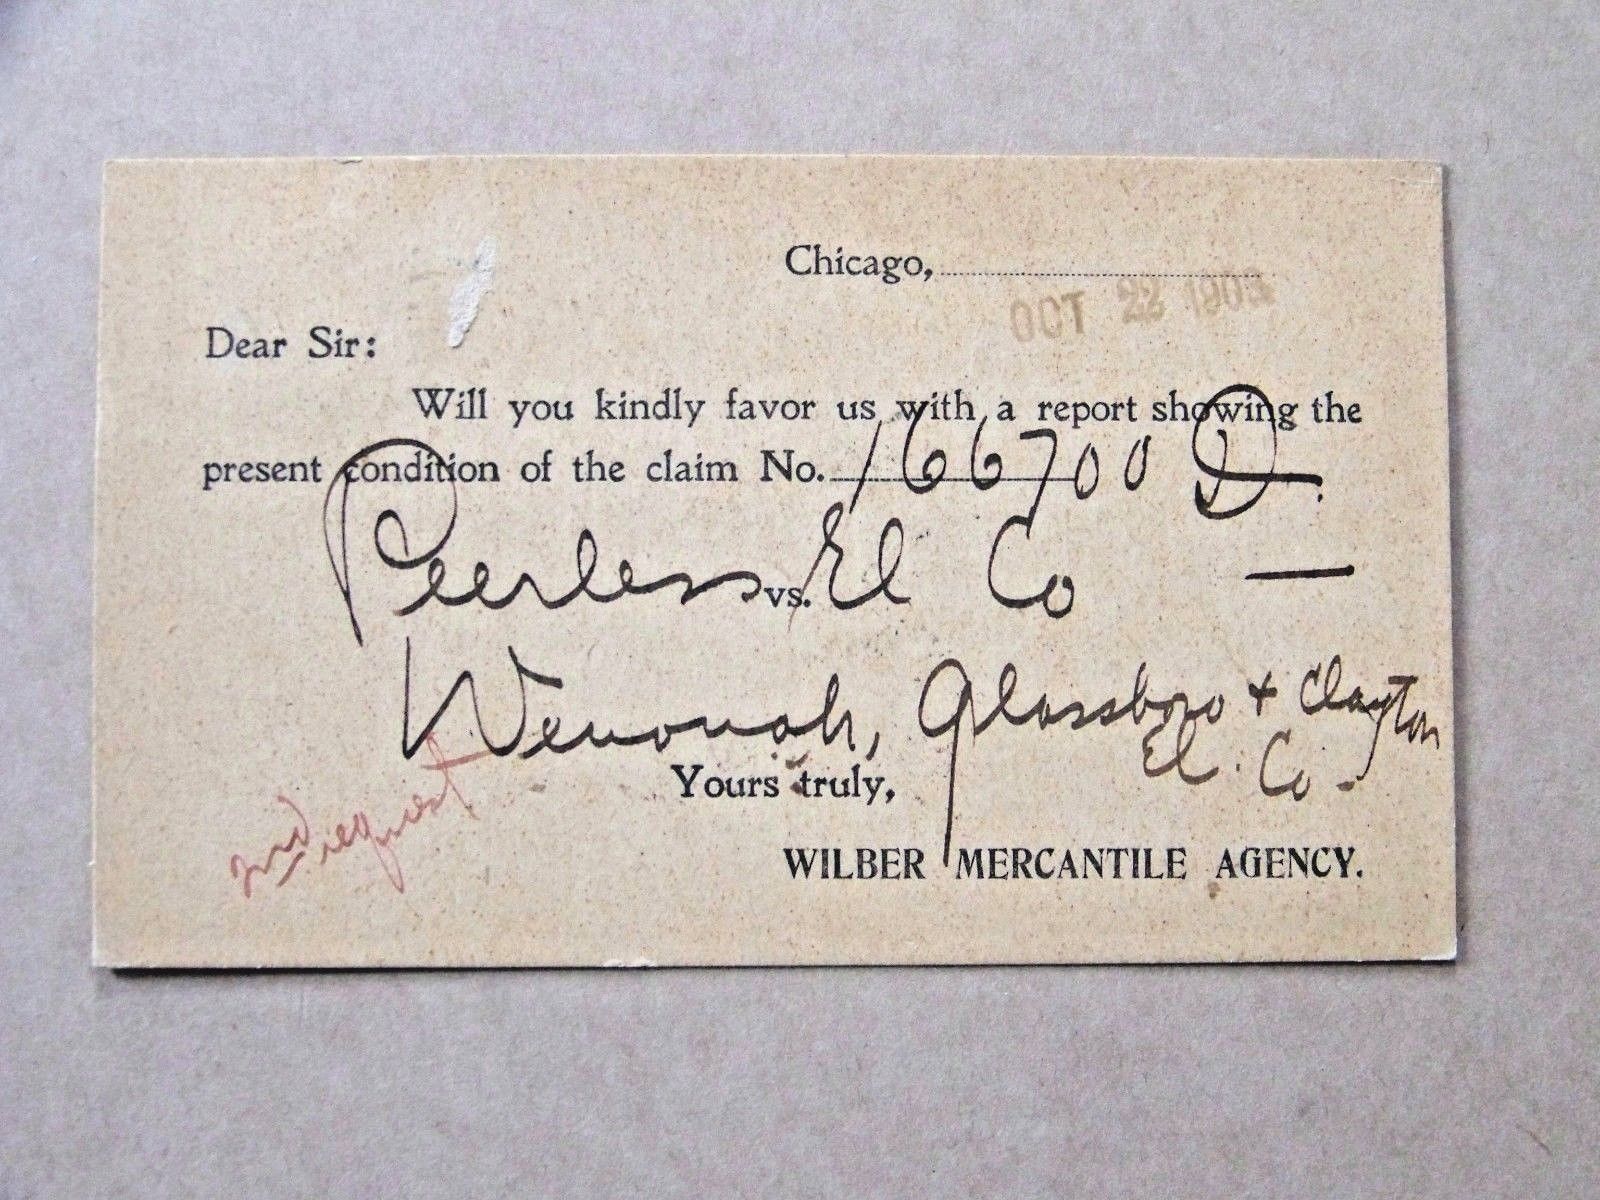 Chicago,
OCT 22 1903
Dear Sir:
Will you kindly favor us with a report showing the
present condition of the claim No. 166700 D.
Peerless vs. El Co —
Wenonah, Glassboro + Clayton
El. Co -
Yours truly,
2nd request
WILBER MERCANTILE AGENCY.